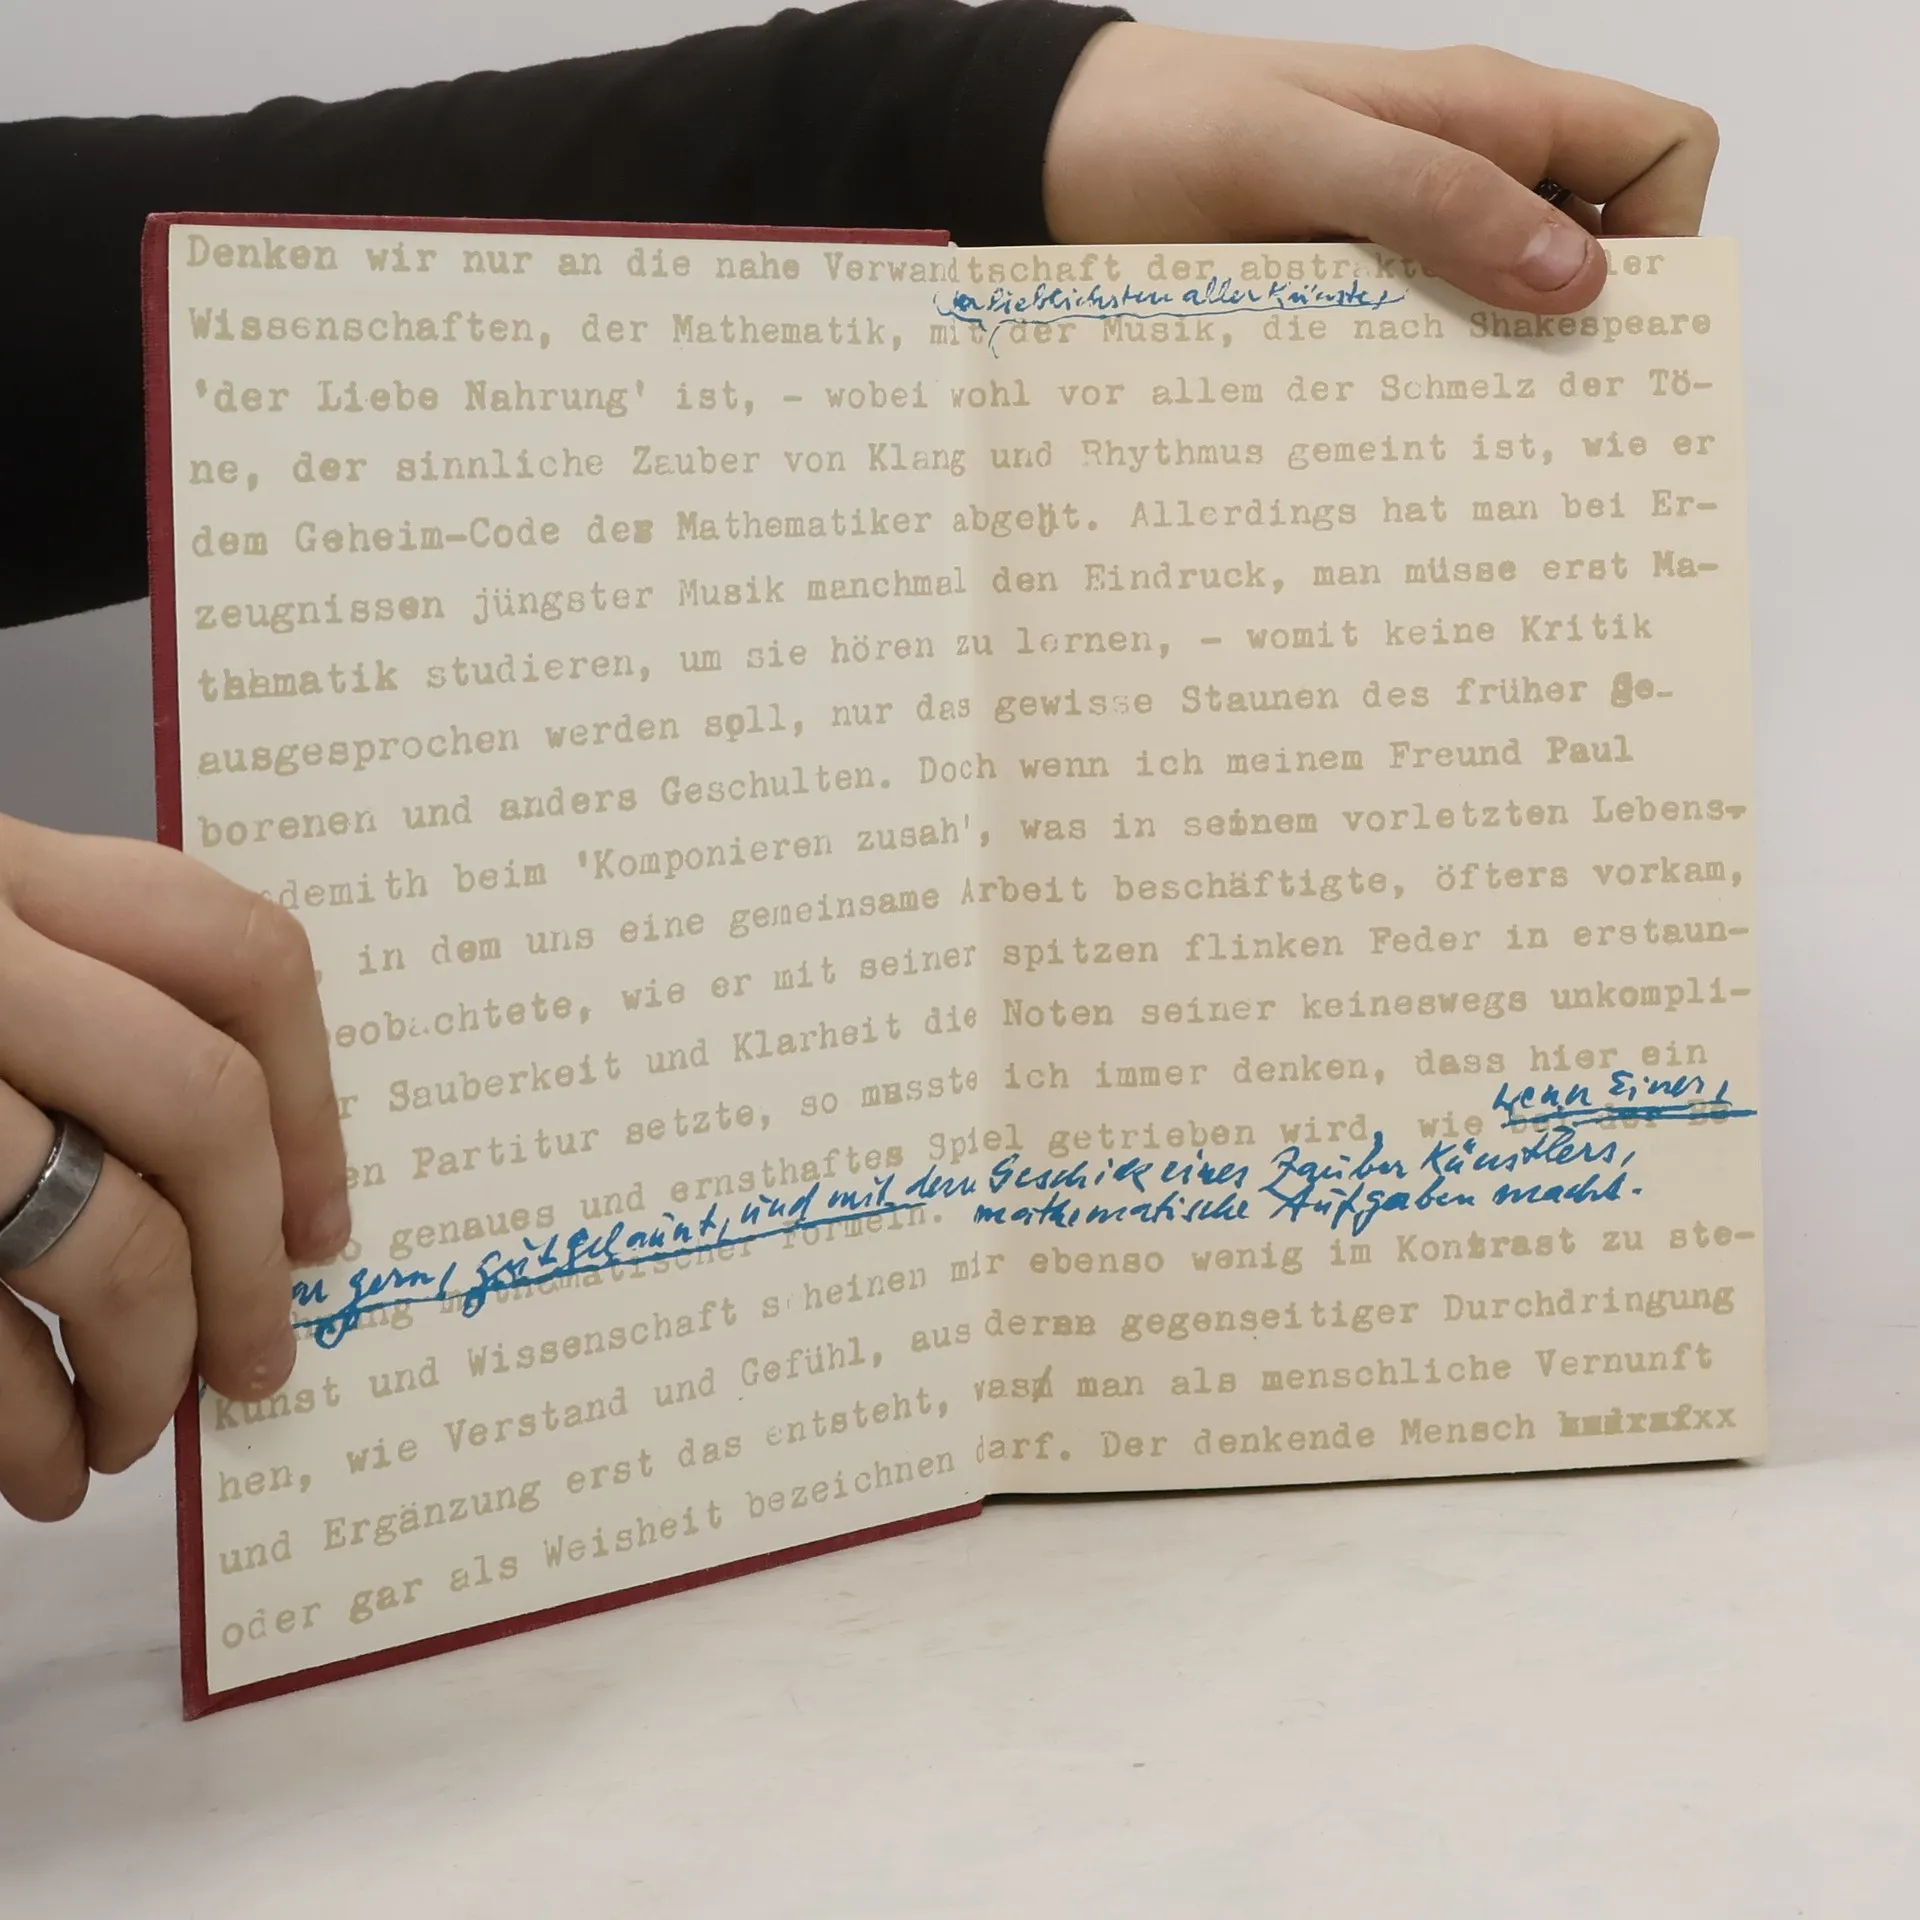 Denken wir nur an die nahe Verwandtschaft der abstrakte ler
der lieblichsten aller Künste,
Wissenschaften, der Mathematik, mit der Musik, die nach Shakespeare
'der Liebe Nahrung' ist, – wobei wohl vor allem der Schmelz der Tö-
ne, der sinnliche Zauber von Klang und Rhythmus gemeint ist, wie er
dem Geheim-Code des Mathematiker abgeht. Allerdings hat man bei Er-
zeugnissen jüngster Musik manchmal den Eindruck, man müsse erst Ma-
thematik studieren, um sie hören zu lernen, – womit keine Kritik
ausgesprochen werden soll, nur das gewisse Staunen des früher ge-
borenen und anders Geschulten. Doch wenn ich meinem Freund Paul
demith beim 'Komponieren zusah', was in seinem vorletzten Lebens-
, in dem uns eine gemeinsame Arbeit beschäftigte, öfters vorkam,
eobachtete, wie er mit seiner spitzen flinken Feder in erstaun-
r Sauberkeit und Klarheit die Noten seiner keineswegs unkompli-
en Partitur setzte, so musste ich immer denken, dass hier ein
wenn Einer,
o genaues und ernsthaftes Spiel getrieben wird, wie bei der Be-
gern, gutgelaunt, und mit dem Geschick eines Zauber Künstlers,
mathematische Aufgaben macht.
ung mathematischer Formeln.
Kunst und Wissenschaft scheinen mir ebenso wenig im Kontrast zu ste-
hen, wie Verstand und Gefühl, aus deren gegenseitiger Durchdringung
und Ergänzung erst das entsteht, was man als menschliche Vernunft
oder gar als Weisheit bezeichnen darf. Der denkende Mensch